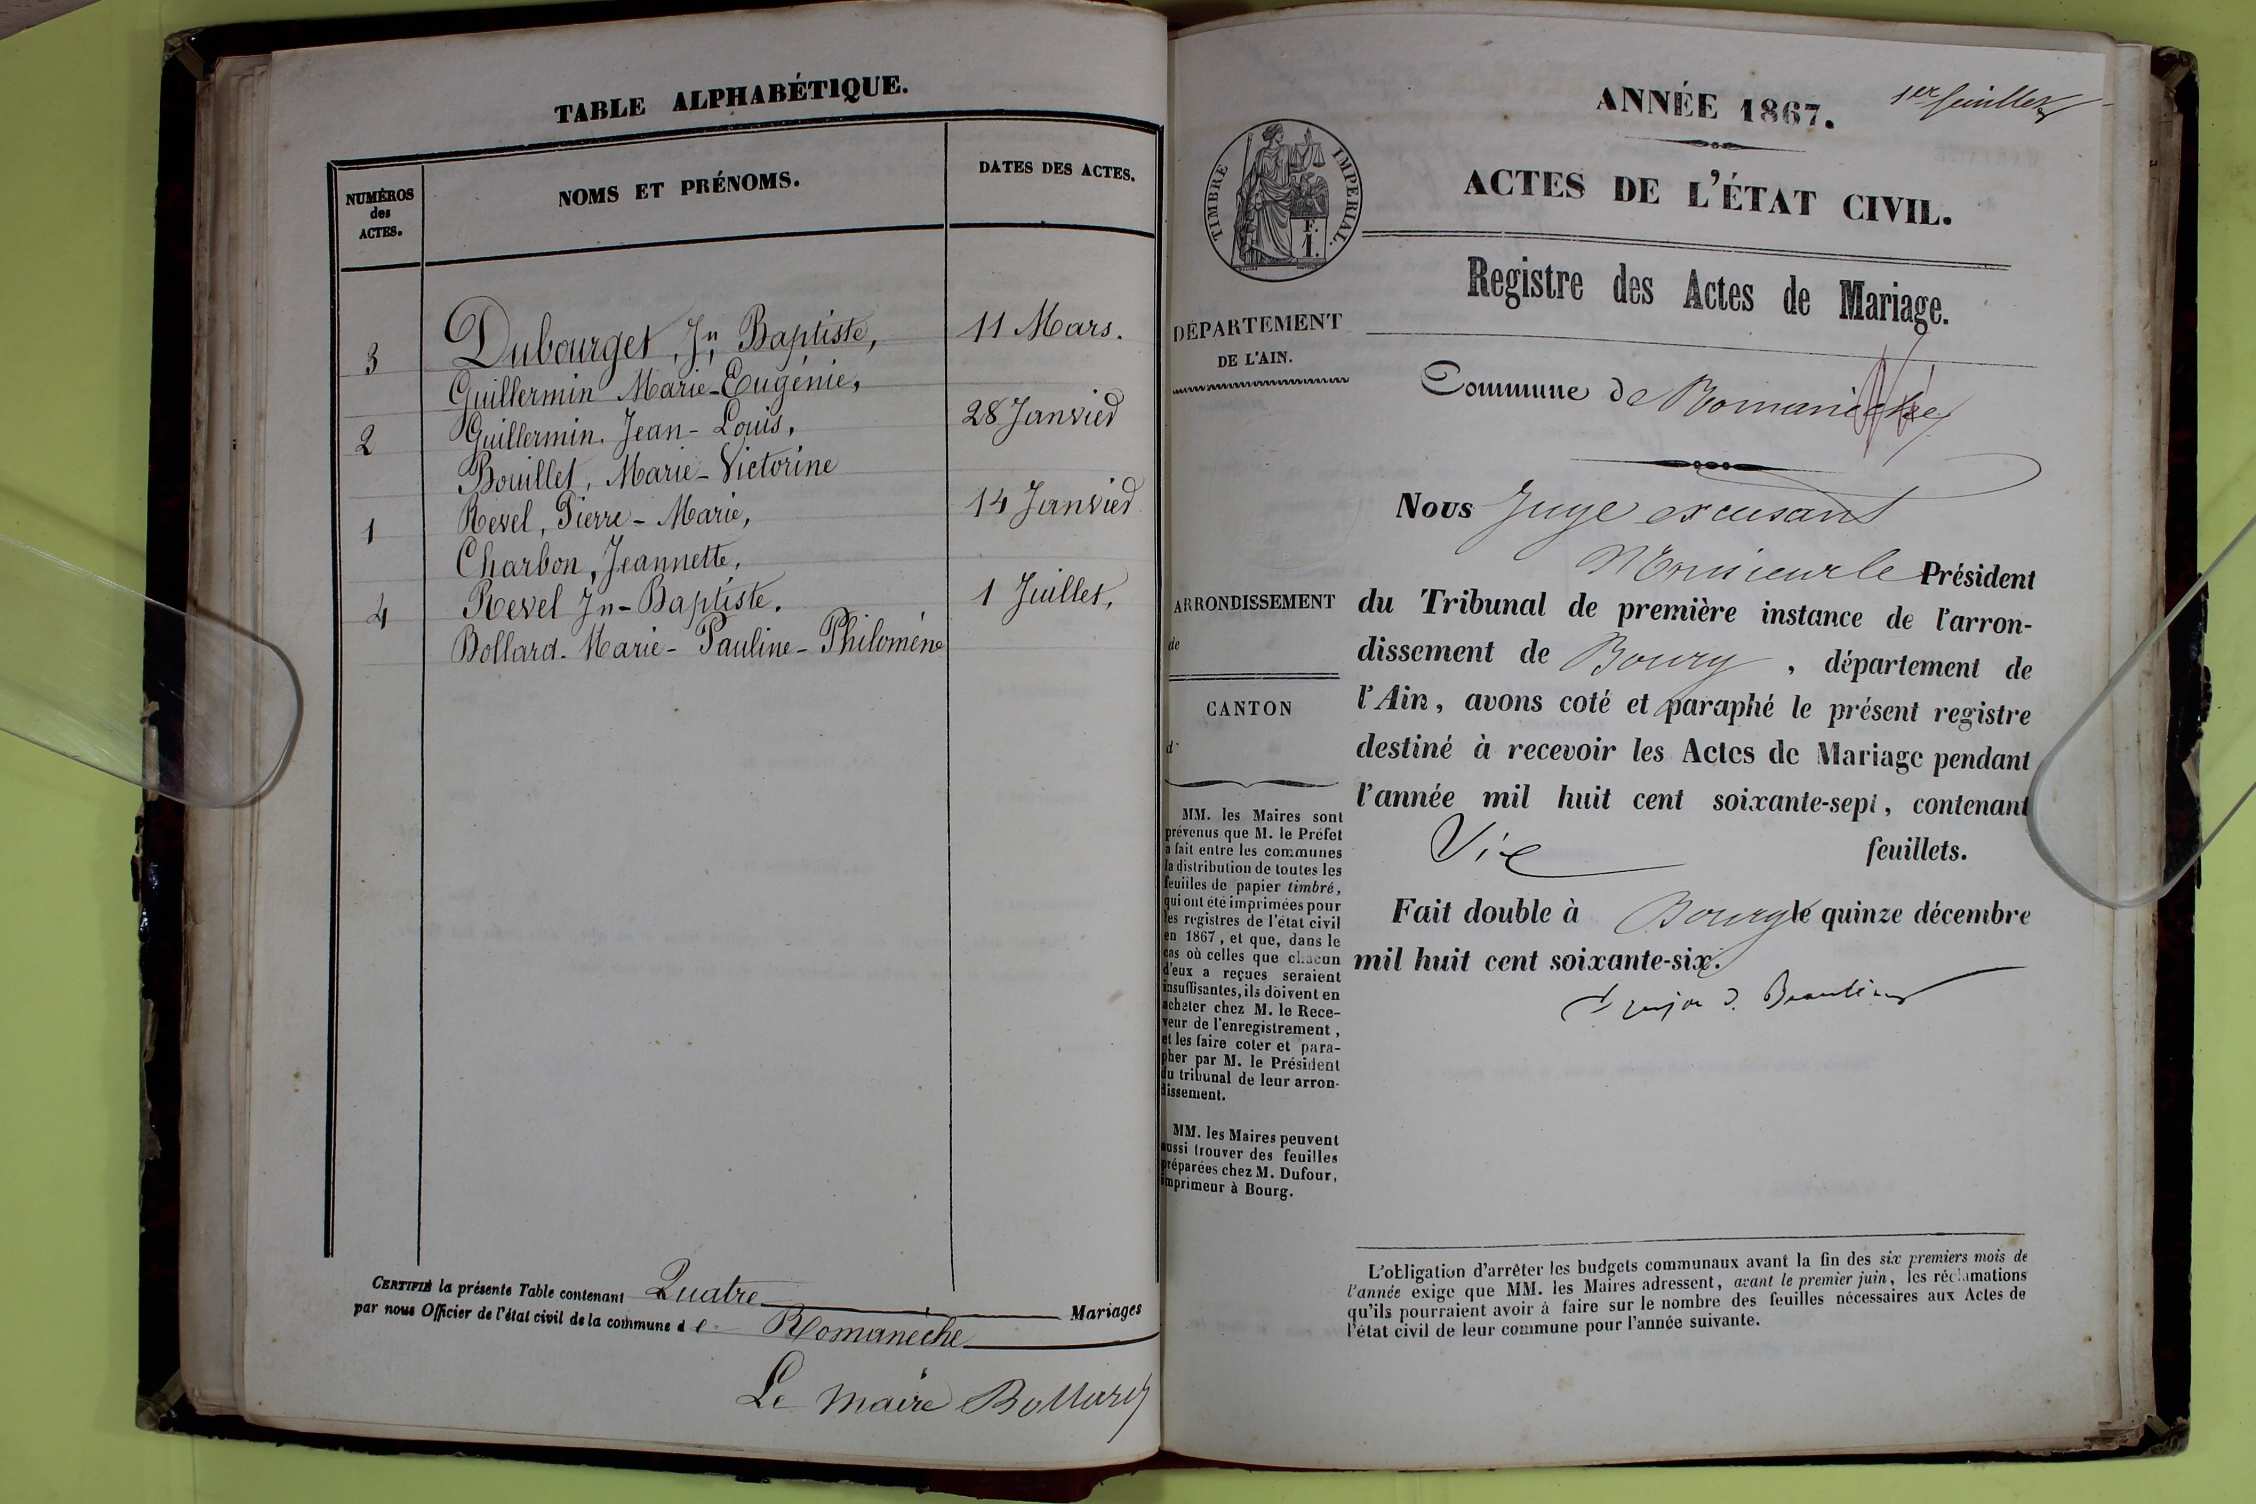 TABLE ALPHABÉTIQUE.
NUMÉROS
des
ACTES.
NOMS ET PRÉNOMS.
DATES DES ACTES.
3 Dubourget, Jn Baptiste, 11 Mars.
Guillermin Marie-Eugénie,
2 Guillermin. Jean-Louis, 28 Janvier
Bouillet, Marie-Victorine
1 Revel, Pierre-Marie, 14 Janvier
Charbon, Jeannette,
4 Revel Jn-Baptiste. 1 Juillet,
Bollard. Marie-Pauline-Philomène
CERTIFIÉ la présente Table contenant Quatre Mariages
par nous Officier de l'état civil de la commune de Romanèche
Le maire Bollard
1er feuillet
ANNÉE 1867.
ACTES DE L'ÉTAT CIVIL.
TIMBRE IMPERIAL.
F.
1.
Registre des Actes de Mariage.
DÉPARTEMENT
DE L'AIN.
Commune de Romanèche
Nous Juge excusant
Monsieur le Président
du Tribunal de première instance de l'arron-
dissement de Bourg, département de
l'Ain, avons coté et paraphé le présent registre
destiné à recevoir les Actes de Mariage pendant
l'année mil huit cent soixante-sept, contenant
Six feuillets.
Fait double à Bourg le quinze décembre
mil huit cent soixante-six.
ARRONDISSEMENT
de
CANTON
d
MM. les Maires sont
prévenus que M. le Préfet
a fait entre les communes
la distribution de toutes les
feuilles de papier timbré,
qui ont été imprimées pour
les registres de l'état civil
en 1867, et que, dans le
cas où celles que chacun
d'eux a reçues seraient
insuffisantes, ils doivent en
acheter chez M. le Rece-
veur de l'enregistrement,
et les faire coter et para-
pher par M. le Président
du tribunal de leur arron-
dissement.
MM. les Maires peuvent
aussi trouver des feuilles
préparées chez M. Dufour,
imprimeur à Bourg.
L'obligation d'arrêter les budgets communaux avant la fin des six premiers mois de
l'année exige que MM. les Maires adressent, avant le premier juin, les réclamations
qu'ils pourraient avoir à faire sur le nombre des feuilles nécessaires aux Actes de
l'état civil de leur commune pour l'année suivante.